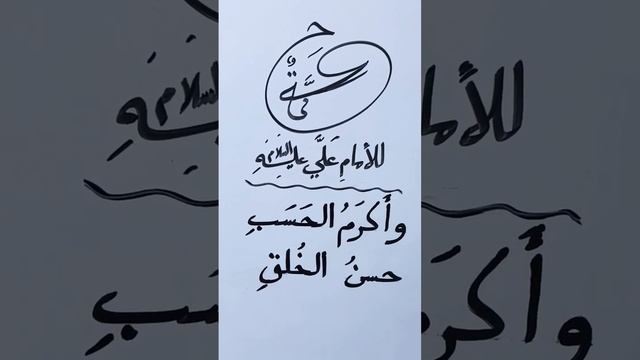 حكمة
للأمامِ عَليَّ عليهِ السلام
وأَكرَمُ الحَسَبِ
حسنُ الخُلقِ